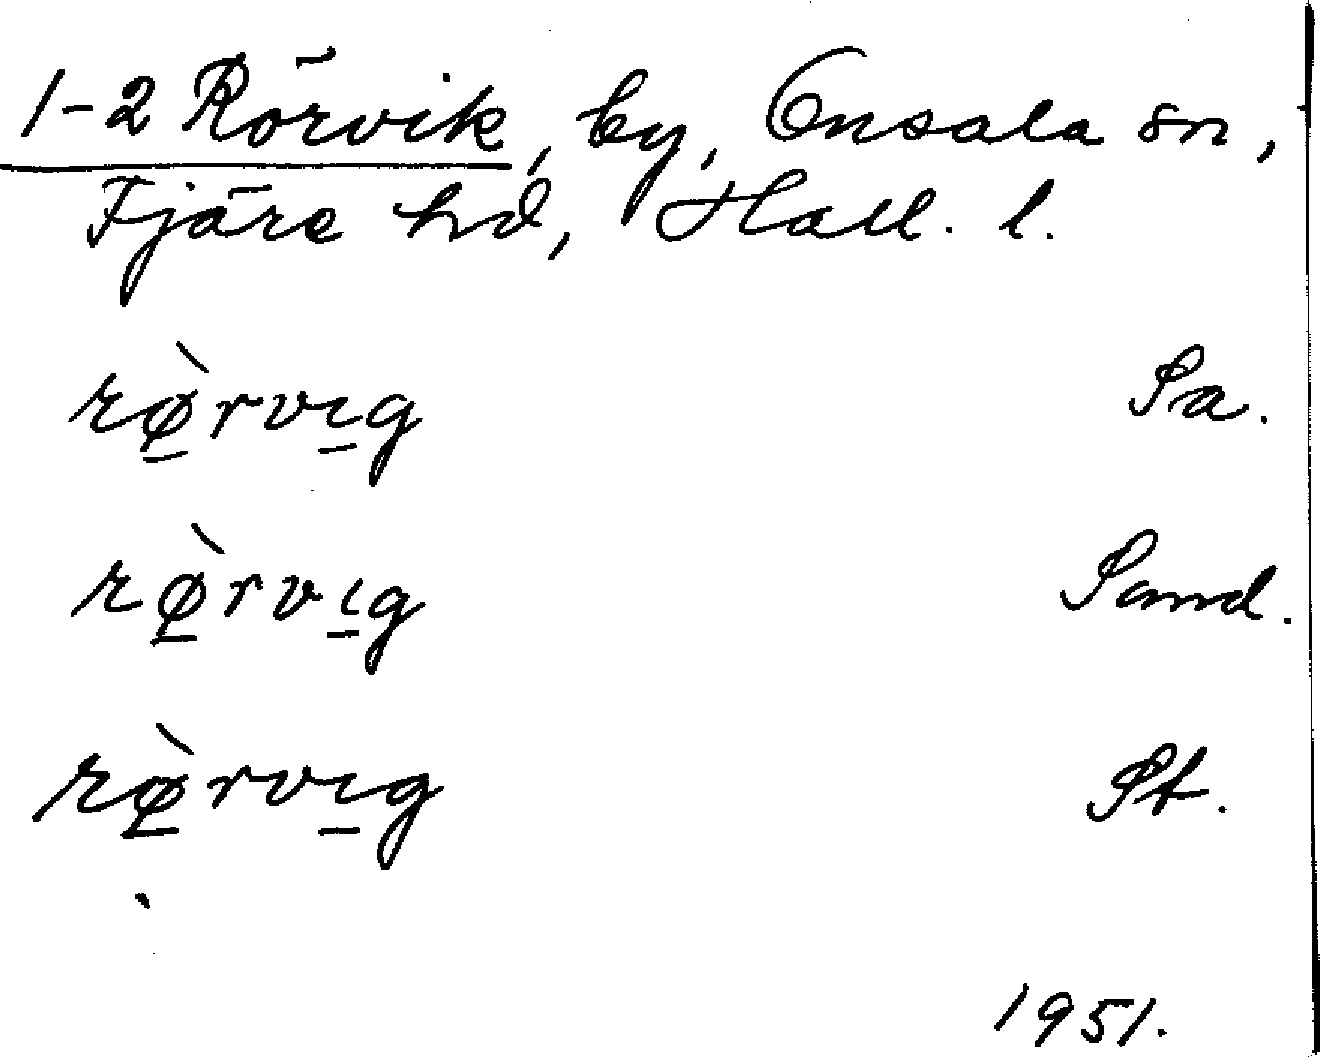 1-2 Rörvik, by, Onsala sn,
Fjäre hd, Hall. l.
rø̠̀rvı̠g Sa.
rø̠̀rvı̠g Sand.
rø̠̀rvı̠g St.
1951.